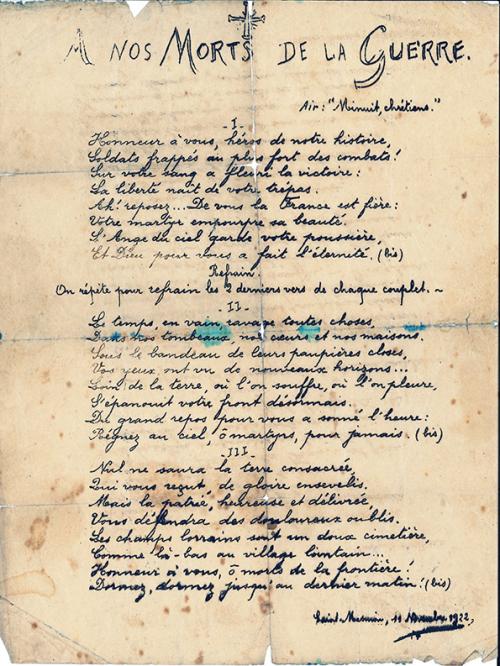 A NOS MORTS DE LA GUERRE.
Air: "Minuit, chrétiens."
- I -
Honneur à vous, héros de notre histoire,
Soldats frappés au plus fort des combats!
Sur votre sang a fleuri la victoire:
La liberté naît de votre trépas.
Ah! reposez... De vous la France est fière:
Votre martyre empourpre sa beauté.
L'Ange du ciel garde votre poussière,
Et Dieu pour vous a fait l'éternité. (bis)
Refrain.
On répète pour refrain les 2 derniers vers de chaque couplet. ~
- II -
Le temps, en vain, ravage toutes choses,
Dans vos tombeaux, nos cœurs et nos maisons.
Sous le bandeau de leurs paupières closes,
Vos yeux ont vu de nouveaux horizons...
Loin de la terre, où l'on souffre, où l'on pleure,
S'épanouit votre front désormais.
Du grand repos pour vous a sonné l'heure:
Régnez au ciel, ô martyrs, pour jamais. (bis)
- III
Nul ne saura la terre consacrée,
Qui vous reçut, de gloire ensevelis.
Mais la patrie, heureuse et délivrée,
Vous défendra des douloureux oublis.
Les champs lorrains sont un doux cimetière,
Comme là-bas au village lointain...
Honneur à vous, ô morts de la frontière!
Dormez, dormez jusqu'au dernier matin! (bis)
Saint-Mesmin, 11 Novembre 1922,